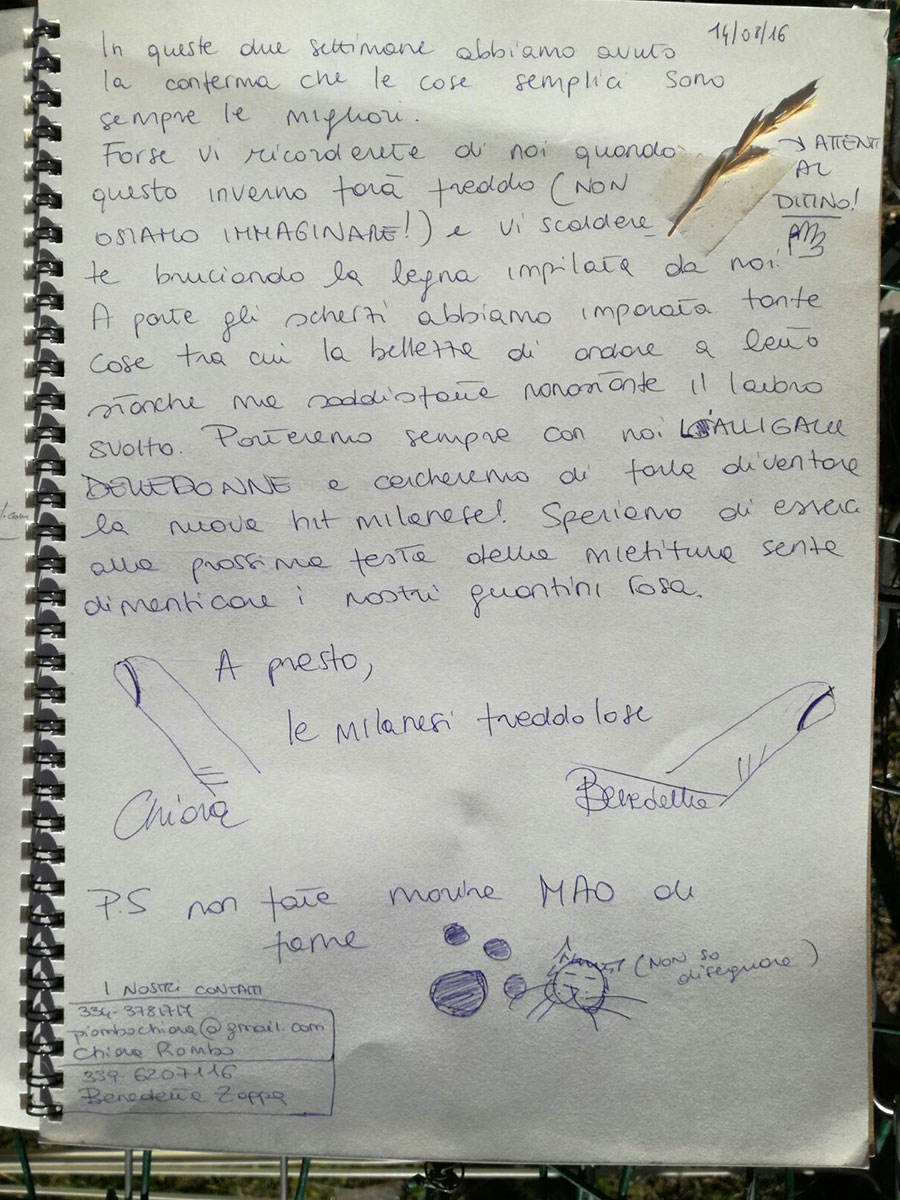 14/08/16
In queste due settimane abbiamo avuto
la conferma che le cose semplici sono
sempre le migliori.
Forse vi ricorderete di noi quando
questo inverno farà freddo (NON
OSIAMO IMMAGINARE!) e vi scaldere
te bruciando la legna impilata da noi!
→ ATTENTI
AL
DITINO!
A parte gli scherzi abbiamo imparato tante
cose tra cui la bellezza di andare a letto
stanche ma soddisfatte nonostante il lavoro
svolto. Porteremo sempre con noi
DELLEDONNE e cercheremo di farla diventare
la nuova hit milanese! Speriamo di esserci
alla prossima festa della mietitura senza
dimenticare i nostri guantini rosa.
A presto,
le milanesi freddolose
Chiara
Benedetta
P.S non fate morire MAO di
fame
(NON SO
disegnare)
I NOSTRI CONTATTI
piombochiara@gmail.com
Chiara
339-6207116
Benedetta Zoppa